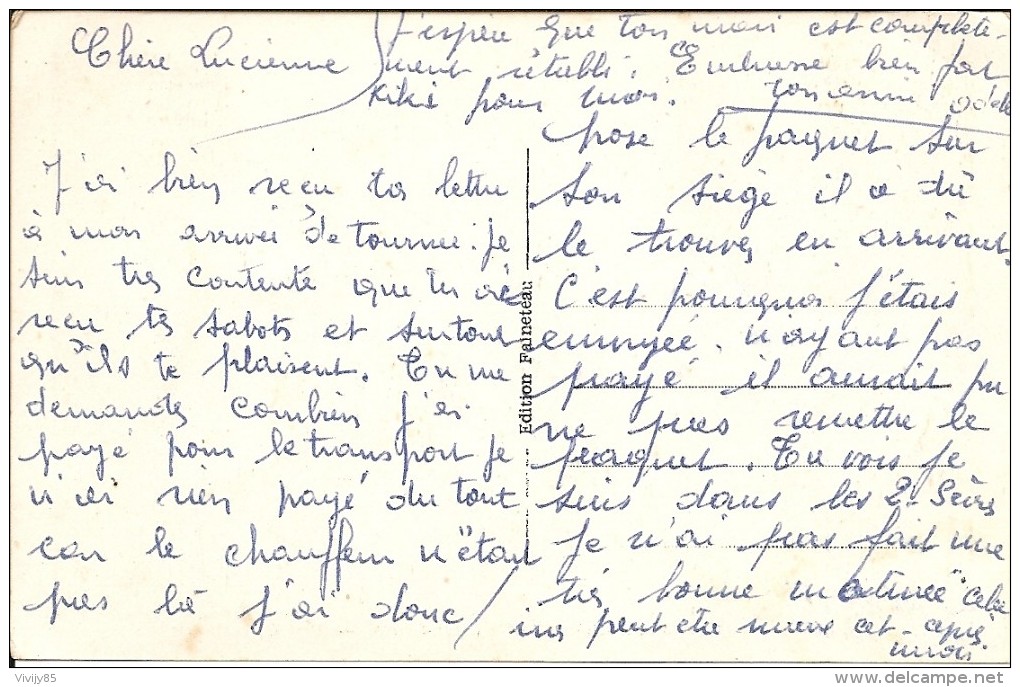 Chère Lucienne
J'ai bien reçu ta lettre
à mon arrivée de tournée. Je
suis très contente que tu aies
reçu tes sabots et surtout
qu'ils te plaisent. Tu me
demandes combien j'ai
payé pour le transport je
n'ai rien payé du tout
car le chauffeur n'était
pas là j'ai donc
posé le paquet sur
son siège il a dû
le trouver en arrivant.
C'est pourquoi j'étais
ennuyée. n'ayant pas
payé il aurait pu
ne pas remettre le
paquet. Tu vois je
suis dans les 2. Sèvres
Je n'ai pas fait une
très bonne matinée
ira peut être mieux cet après
midi
J'espère que ton mari est complète-
ment rétabli. Embrasse bien fort
Kiki pour moi. ton amie Odette
Edition Faineteau
http://www.delcampe.net
Vivijy85